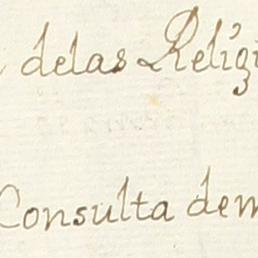 delas Relig
Consulta dem